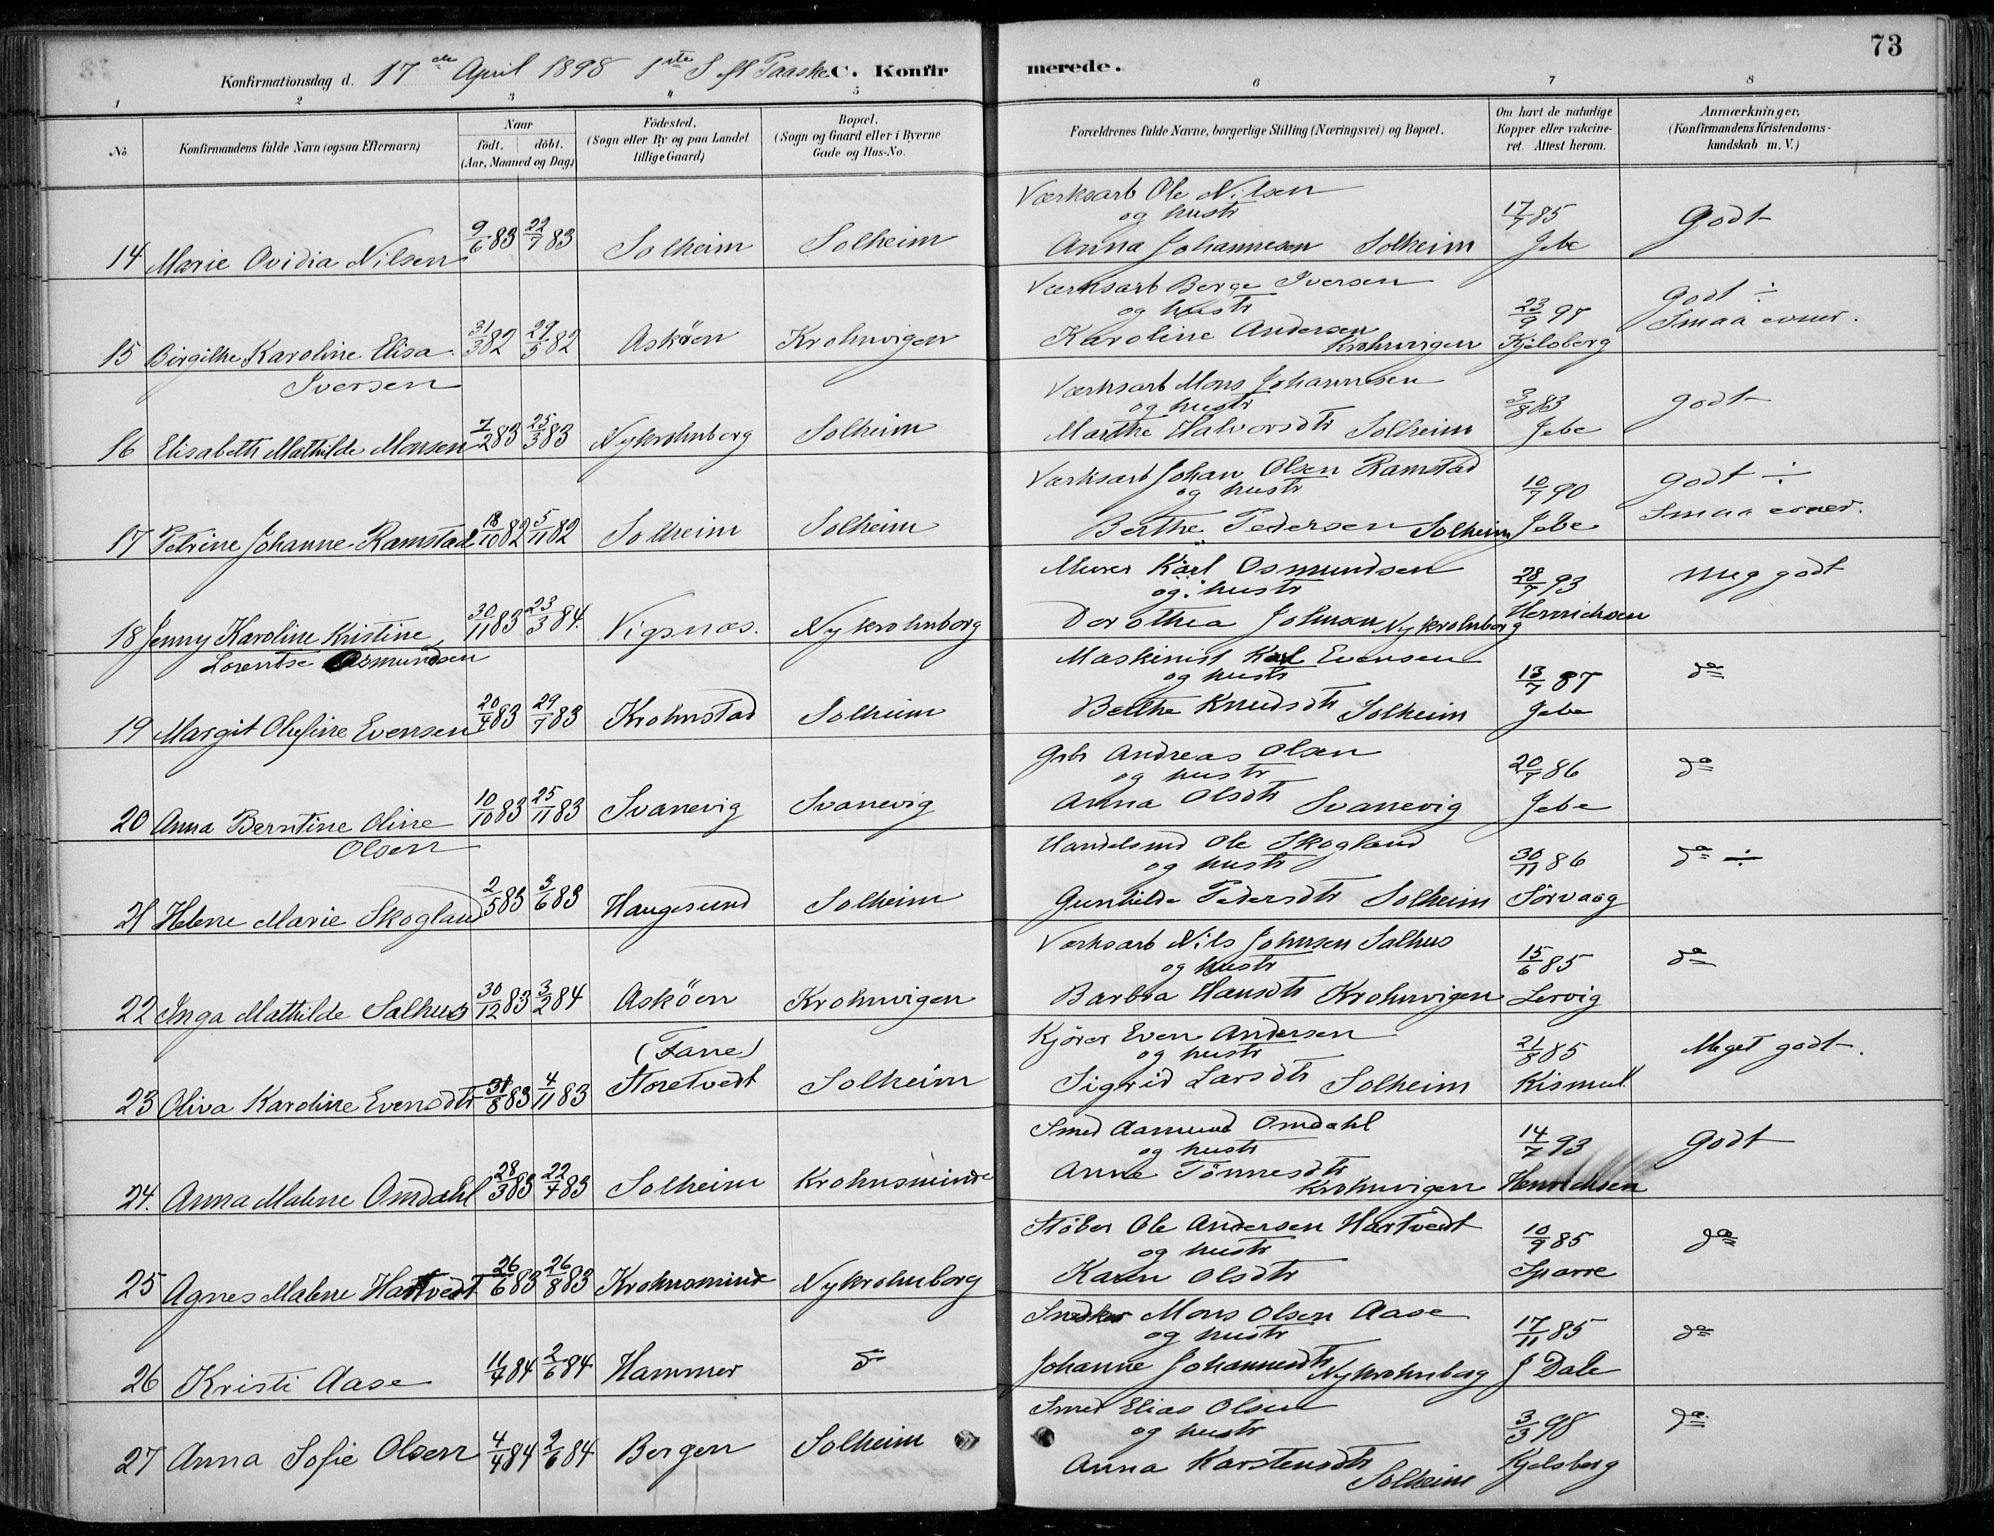 73
Konfirmationsdag d. 17de April 1898 1ste S. e. Paaske C. Konfirmerede.
1 2 3 4 5 6 7 8
No. Konfirmandens fulde Navn (ogsaa Efternavn)
Naar født. døbt. (Aar, Maaned og Dag)
Fødested. (Sogn eller By og paa Landet tillige Gaard)
Bopæl. (Sogn og Gaard eller i Byerne Gade og Hus-No.
Forældrenes fulde Navne, borgerlige Stilling (Næringsvei) og Bopæl.
Om havt de naturlige Kopper eller vakcineret. Attest herom.
Anmærkninger. (Konfirmandens Kristendomskundskab m. V.)
Værksarb Ole Nilsen
og hustr
14 Marie Ovidia Nilsen 9/6 83 22/7 83 Solheim Solheim Anna Johannesen Solheim 17/7 85 Jebe Godt
Værksarb Berge Iversen
og hustr
15 Birgithe Karoline Elisa 31/3 82 29/5 82 Askøen Krohnvigen Karoline Andersen Krohnvigen 23/9 97 Kjelsberg Godt ÷ Smaa evner.
Iversen
Værksarb Mons Johannesen
og hustr
16 Elisabeth Mathilde Monsen 7/2 83 25/3 83 Nykrohnborg Solheim Marthe Halvorsdtr Solheim 3/8 83 Jebe godt
Værksarb Johan Olsen Ramstad
og hustr
17 Petrine Johanne Ramstad 18/10 82 5/11 82 Solheim Solheim Berthe Pedersen Solheim 10/7 90 Jebe godt ÷ Smaa evner.
Murer Karl Osmundsen
og hustr
18 Jenny Karoline Kristine 30/11 83 23/3 84. Vigsnæs. Nykrohnborg Dorothea Johnsen Nykrohnborg 28/7 93 Henrichsen meg godt
Lorentse Osmundsen
Maskinist Karl Evensen
og hustr
19 Margit Olufine Evensen 20/4 83 29/7 83 Krohnstad Solheim Berthe Knudsdtr Solheim 13/7 87 Jebe do
Grbr Andreas Olsen
og hustr
20 Anna Berntine Oline 10/10 83 25/11 83 Svanevig Svanevig Anna Olsdtr Svanevig 20/7 86 Jebe do
Olsen
Handelsmd Ole Skogland
og hustr
21 Helene Marie Skogland 2/5 83 3/6 83 Haugesund Solheim Gunhilde Pedersdtr Solheim 30/11 86 Sørvaag do ÷
Værksarb Nils Johnsen Salhus
og hustr
22 Inga Mathilde Salhus 30/12 83 3/2 84 Askøen Krohnvigen Barbra Hansdtr Krohnvigen 15/6 85 Lervig do
Kjører Even Andersen
og hustr
23 Oliva Karoline Evensdtr 31/8 83 4/11 83 (Fane) Storetvedt Solheim Sigrid Larsdtr Solheim 21/8 85 Kismul Meget godt.
Smed Aamund Omdahl
og hustr
24. Anna Malene Omdahl 28/3 83 22/4 83 Solheim Krohnsminde Anne Tønnesdtr Krohnvigen 14/7 93 Henrichsen Godt
Støber Ole Andersen Hartvedt
og hustr
25 Agnes Malene Hartvedt 26/6 83 26/8 83 Krohnsminde Nykrohnborg Karen Olsdtr 10/9 85 Sparre do
Snedker Mons Olsen Aase
og hustr
26 Kristi Aase 11/4 84 2/6 84 Hammer do Johanne Johannesdtr Nykrohnborg 17/11 85 J Dale do
Smed Elias Olsen
og hustr
27 Anna Sofie Olsen 4/4 84 2/6 84 Bergen Solheim Anna Karstensdtr Solheim 3/3 98 Kjelsberg do